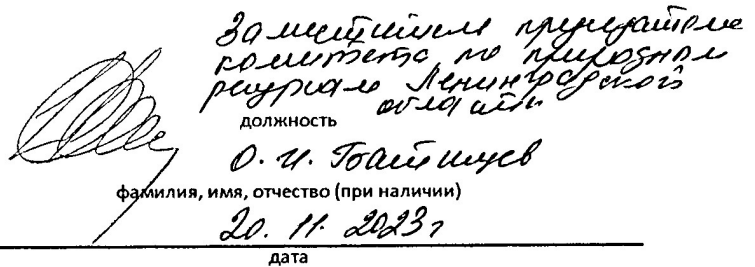 Заместитель председателя
комитета по природным
ресурсам Ленинградской
области
должность
О. И. Батищев
фамилия, имя, отчество (при наличии)
20. 11. 2023г
дата